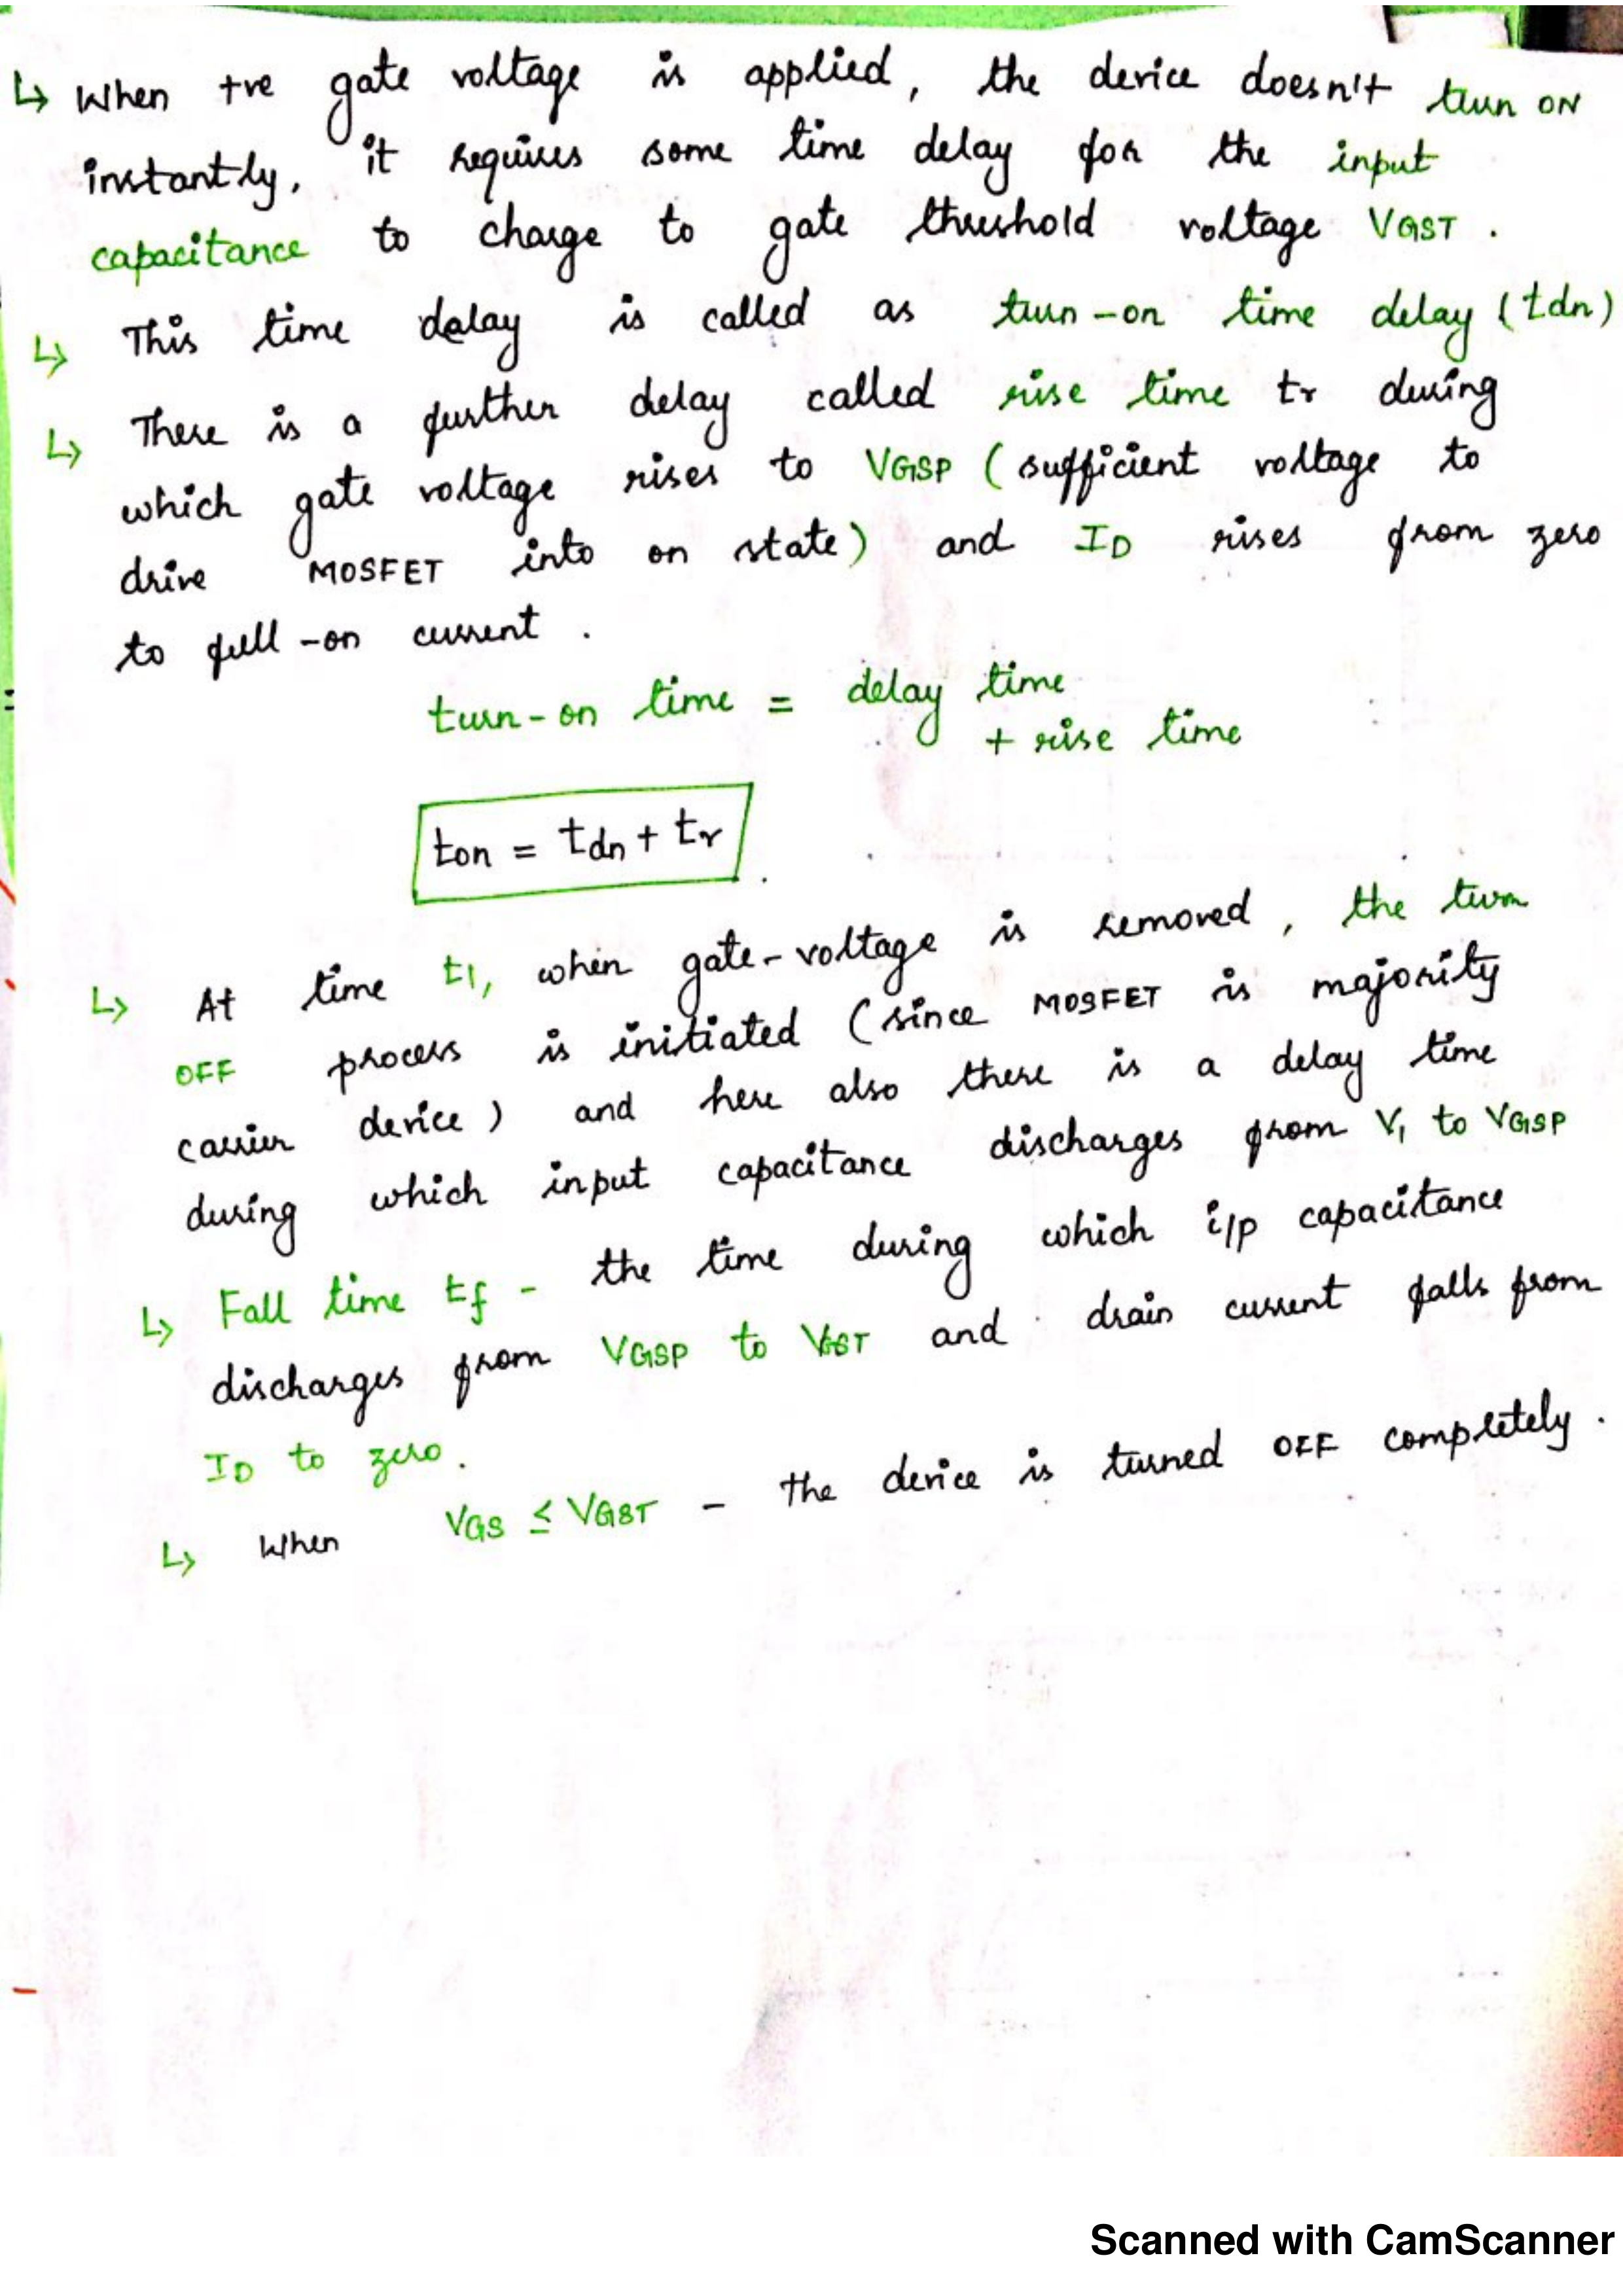 ↳ When +ve gate voltage is applied, the device doesn't turn ON
instantly, it requires some time delay for the input
capacitance to charge to gate threshold voltage VGST.
↳ This time delay is called as turn-on time delay (tdn)
↳ There is a further delay called rise time tr during
which gate voltage rises to VGSP (sufficient voltage to
drive MOSFET into on state) and ID rises from zero
to full-on current.
turn-on time = delay time
+ rise time
ton = tdn + tr.
↳ At time t1, when gate-voltage is removed, the turn
OFF process is initiated (since MOSFET is majority
carrier device) and here also there is a delay time
during which input capacitance discharges from V1 to VGSP
↳ Fall time tf - the time during which i/p capacitance
discharges from VGSP to VGST and drain current falls from
ID to zero.
↳ When VGS ≤ VGST - the device is turned OFF completely.
Scanned with CamScanner